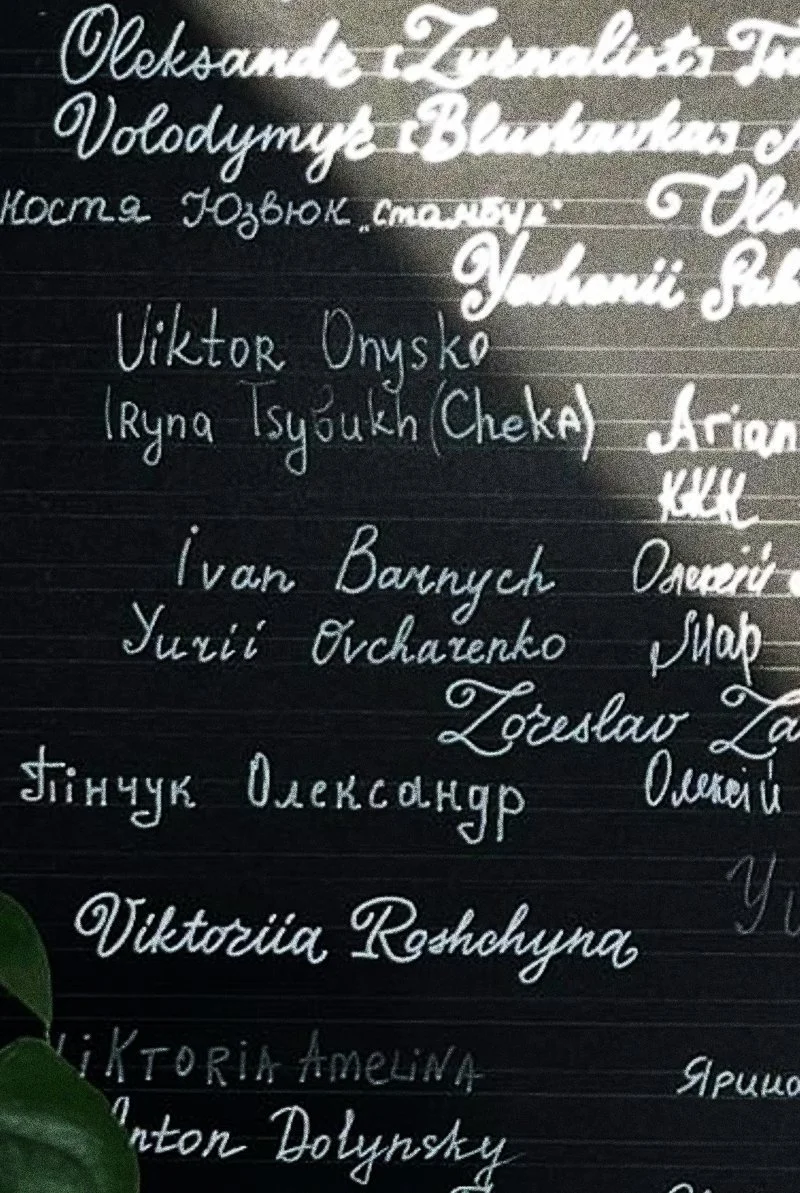 Oleksandr "Zurnalist"
Volodymyr "Bluskavka"
Костя Юзвюк „Стамбул"
Yevhenii
Viktor Onysko
Iryna Tsybukh (Cheka) Arian
ККК
Ivan Barnych Олексій
Yurii Ovcharenko Мар
Zoreslav Za
Пінчук Олександр Олексій
Yu
Viktoriia Roshchyna
Viktoria Amelina Ярина
Anton Dolynsky